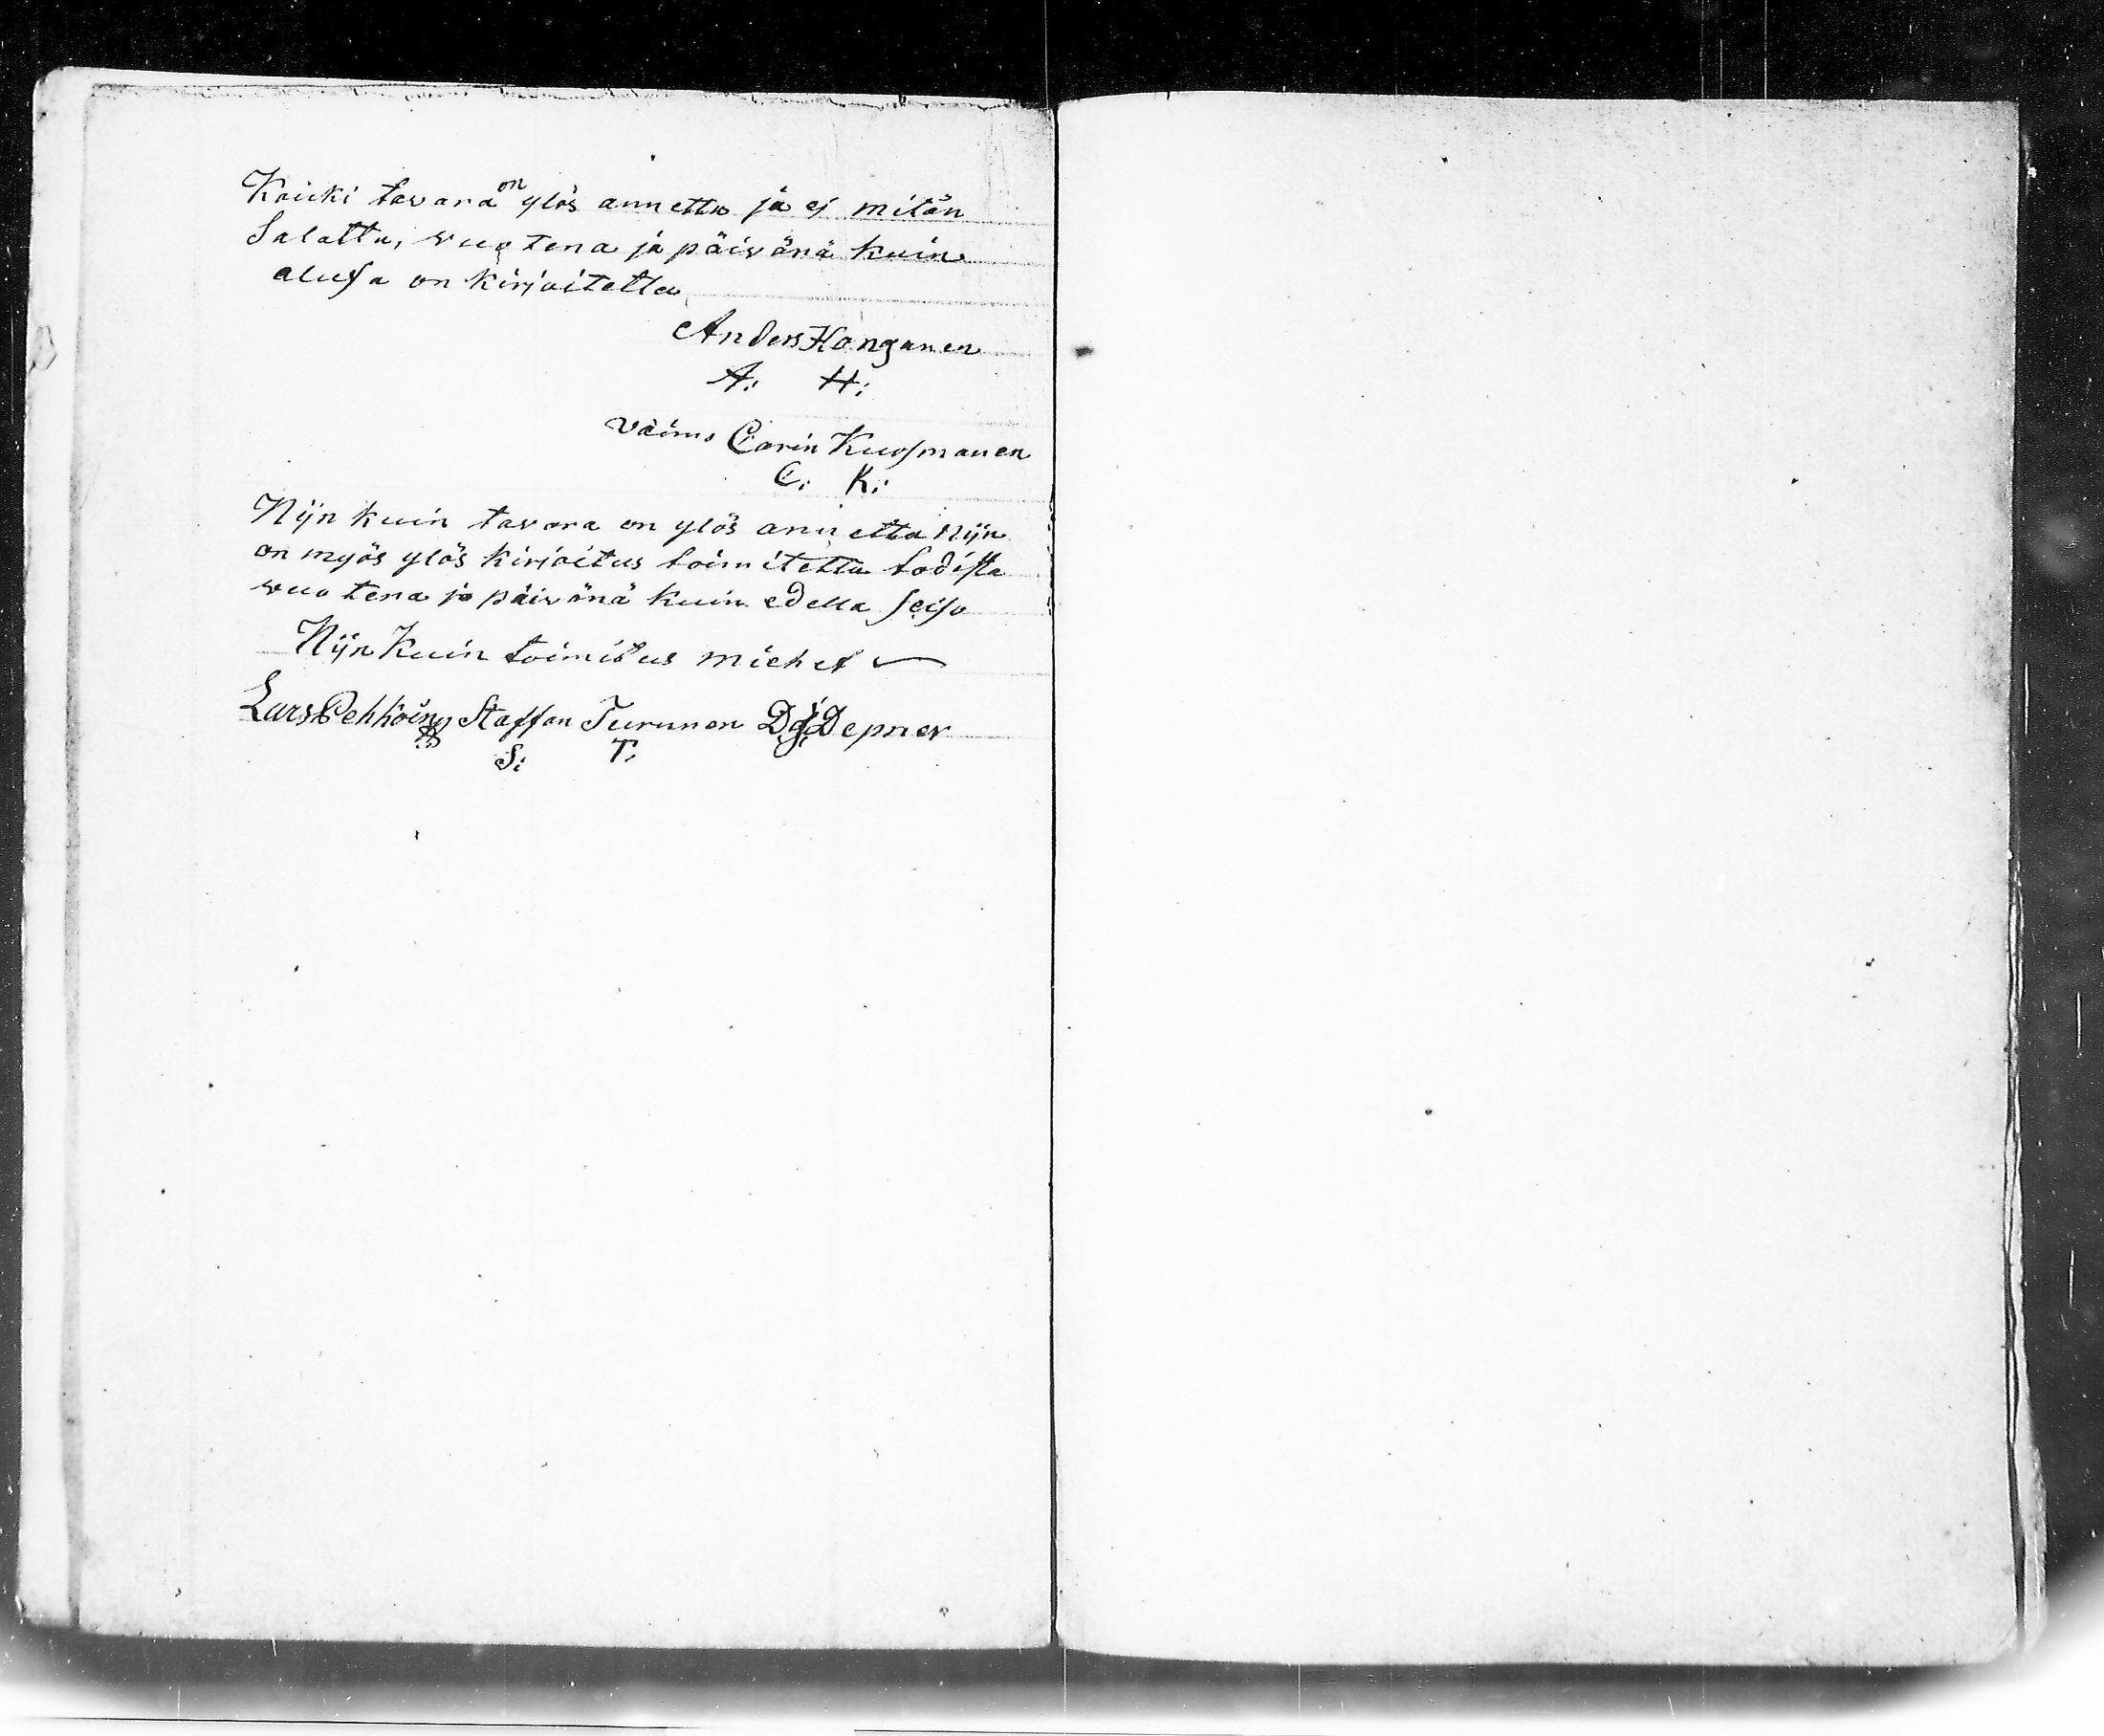 Kaicki tavara on ylös annettu ja ej mitän
Salattu, vuotena ja päivänä kuin
alusa on kirjoitettu
Anders Hanganen
A: H:
Vaimo Carin Kuosmanen
C: K:
Nijn kuin tavara on ylös annettu Nijn
on myös ylös kirjoitus toimitettu todista
vuotena ja päivänä kuin edella seiso
Nijn Kuin toimitus miehet
Lars Pehköin Staffan Turunen Depner
S: T: